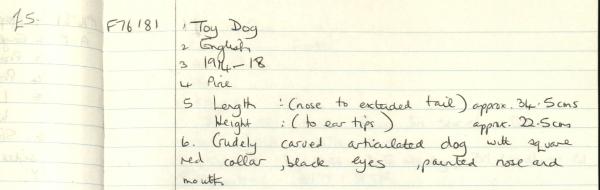 £5. F76181 1 Toy Dog
2 English
3 1914-18
4 Pine
5 Length : (nose to extended tail) approx. 34.5cms
Height : (to ear tips) approx. 22.5cms
6. Crudely carved articulated dog with square
red collar, black eyes, painted nose and
mouth